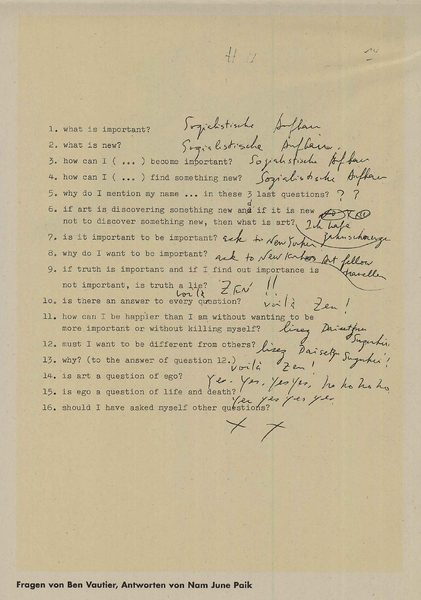 1. what is important? Sozialistische Aufbau
2. what is new? Sozialistische Aufbau.
3. how can I (...) become important? Sozialistische Aufbau
4. how can I (...) find something new? Sozialistische Aufbau
5. why do I mention my name ... in these 3 last questions? ? ?
6. if art is discovering something new and if it is new
not to discover something new, then what is art? Ich habe
7. is it important to be important? ask to New Yorker
8. why do I want to be important? ask to New Yorker Art fellow
traveller
9. if truth is important and if I find out importance is
not important, is truth a lie? ZEN !!
10. is there an answer to every question? voilà voilà Zen!
11. how can I be happier than I am without wanting to be
more important or without killing myself? lisez Daisetz Suzuki
12. must I want to be different from others? lisez Daisetz Suzuki!
13. why? (to the answer of question 12.) voilà Zen!
14. is art a question of ego? Yes. Yes, Yes Yes, ho ho ho ho
15. is ego a question of life and death? Yes yes yes yes
16. should I have asked myself other questions?
X X
Fragen von Ben Vautier, Antworten von Nam June Paik